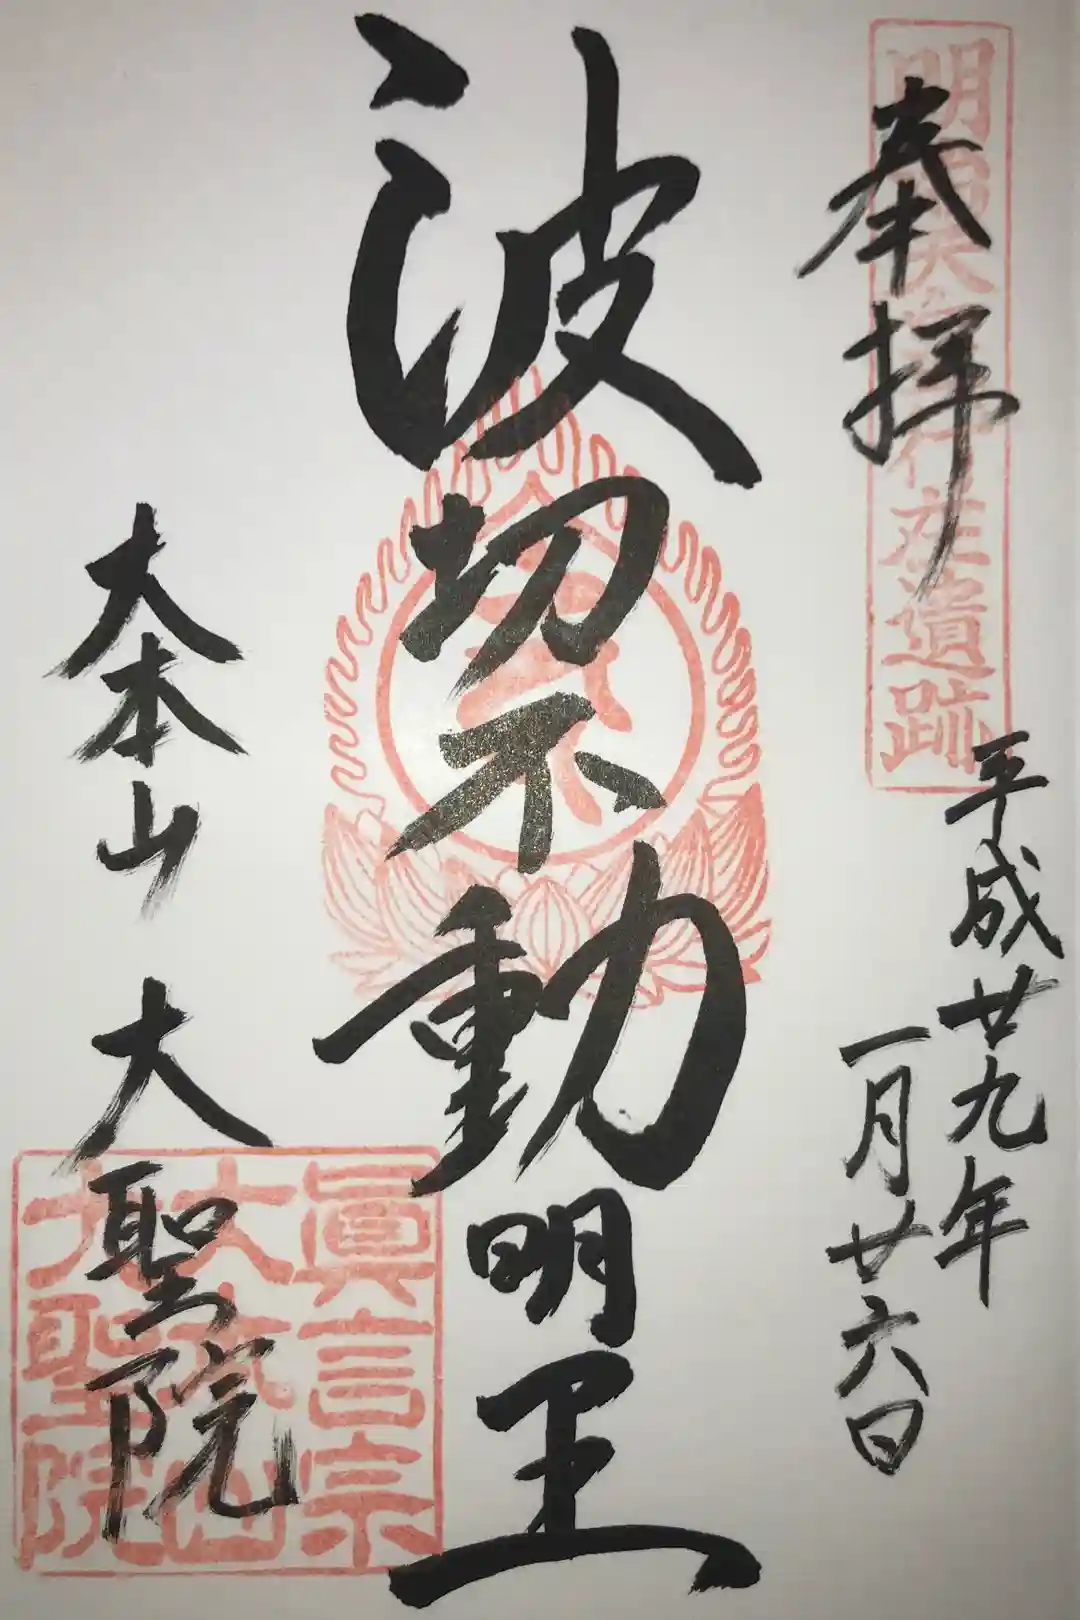 奉拝
明治天皇行在遺跡
平成廿九年
一月廿六日
波切不動明王
大本山 大聖院
眞言宗
大本山
大聖院